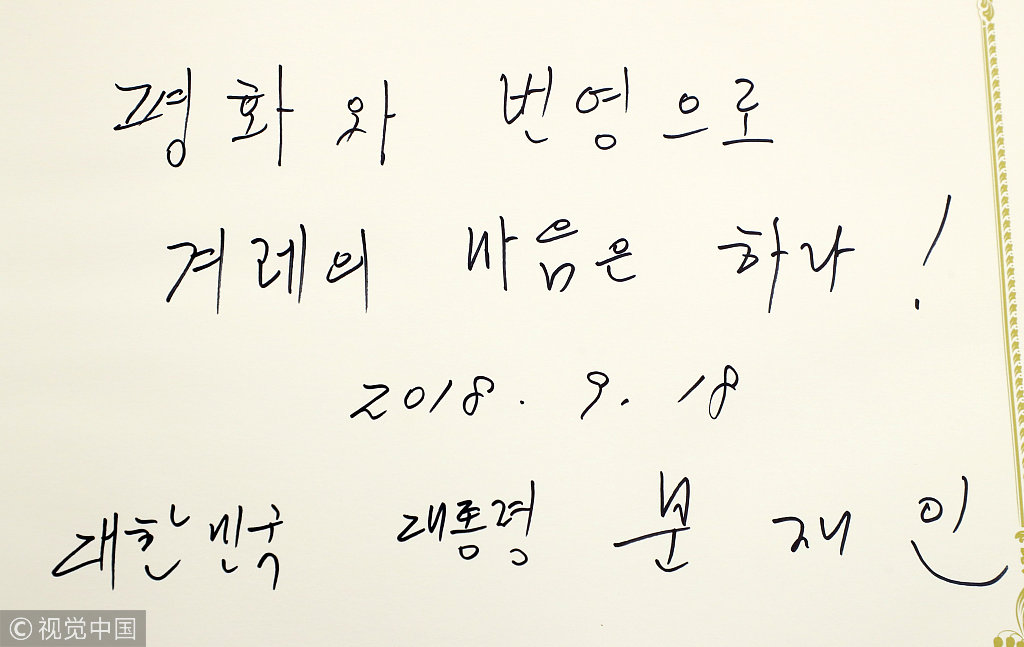 평화와 번영으로
겨레의 마음은 하나!
2018. 9. 18
대한민국 대통령 문재인
© 视觉中国